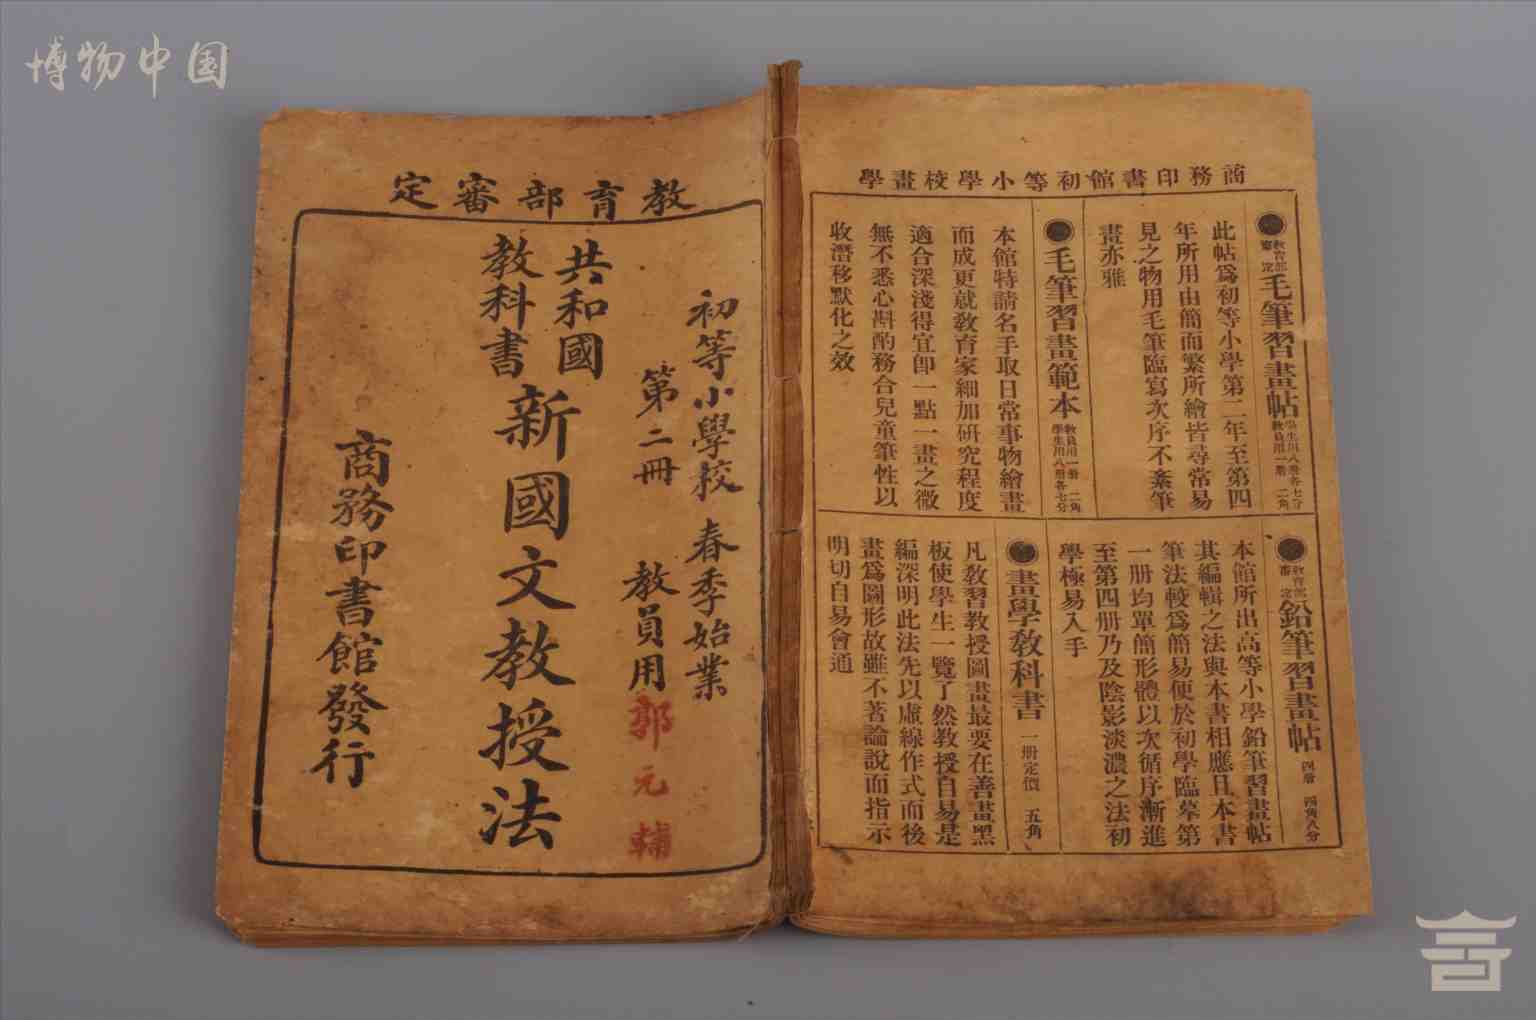 博物中国
商務印書館初等小學校畫學
教育部審定
毛筆習畫帖
學生用八册各七分
教員用一册 二角
此帖爲初等小學第二年至第四
年所用由簡而繁所繪皆尋常易
見之物用毛筆臨寫次序不紊筆
畫亦雅
毛筆習畫範本
教員用一册 二角
學生用八册各七分
本館特請名手取日常事物繪畫
而成更就教育家細加研究程度
適合深淺得宜卽一點一畫之微
無不悉心斟酌務合兒童筆性以
收潛移默化之效
教育部審定
鉛筆習畫帖
四册 四角八分
本館所出高等小學鉛筆習畫帖
其編輯之法與本書相應且本書
筆法較爲簡易便於初學臨摹第
一册均單簡形體以次循序漸進
至第四册乃及陰影淡濃之法初
學極易入手
畫學教科書
一册定價 五角
凡教習教授圖畫最要在善畫黑
板使學生一覽了然教授自易是
編深明此法先以虛線作式而後
畫爲圖形故雖不著論說而指示
明切自易會通
教育部審定
初等小學校 春季始業
第二冊 教員用
郭元輔
共和國
教科書
新國文教授法
商務印書館發行